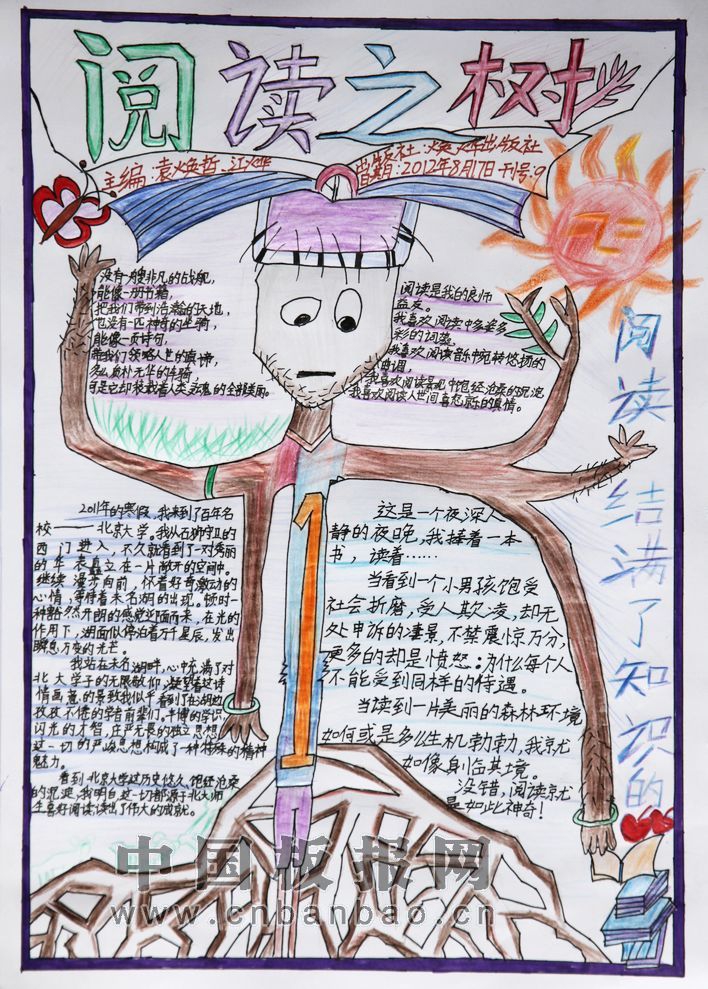 阅读之树
主编:袁焕哲、江烨
出版社:焕烨出版社
2012年8月17日 刊号:9
没有一艘非凡的战舰,
能像一册书籍,
把我们带到浩瀚的天地,
也没有一匹神奇的坐骑,
能像一页诗句,
带我们领略人世的真谛,
多么质朴无华的车骑,
可是它却装载着人类灵魂的全部美丽。
阅读是我的良师
益友。
我喜欢阅读中多姿多
彩的词藻,
我喜欢阅读音乐中宛转悠扬的
曲调,
我喜欢阅读景观中饱经沧桑的沉淀
我喜欢阅读人世间喜怒哀乐的真情。
2011年的寒假,我来到了百年名
校——北京大学。我从石狮守卫的
西门进入,不久就看到了一对秀丽
的华表矗立在一片敞开的空间中。
继续漫步向前,怀着好奇激动的
心情,等待着未名湖的出现。顿时一
种豁然开朗的感觉迎面而来,在光的
作用下,湖面似停泊着万千星辰,发出
瞬息万变的光芒。
我站在未名湖畔,心中充满了对
北大学子的无限敬仰,凝望着这诗
情画意的景致我似乎看到了在湖边
孜孜不倦的学者前辈们。博的学识
闪光的才智,庄严无畏的独立思想
这一切的严峻思想构成了一种特殊的精神
魅力。
看到北京大学这历史悠久、饱经沧桑
的沉淀,我明白这一切都源于北大师
生喜好阅读,读出了伟大的成就。
这是一个夜深人
静的夜晚,我揉着一本
书,读着……
当看到一个小男孩饱受
社会折磨,受人欺凌,却无
处申诉的凄景,不禁震惊万分,
更多的却是愤怒:为什么每个人
不能受到同样的待遇。
当读到一片美丽的森林环境
如何或是多么生机勃勃,我就尤
如像身临其境。
没错,阅读就
是如此神奇!
阅读结满了知识的
中国板报网
www.cnbanbao.cn